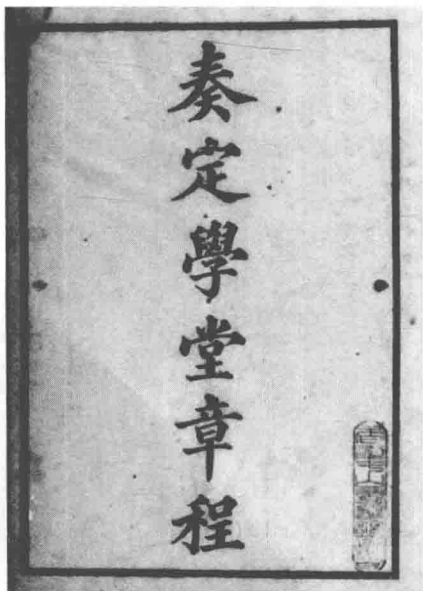 奏定學堂章程